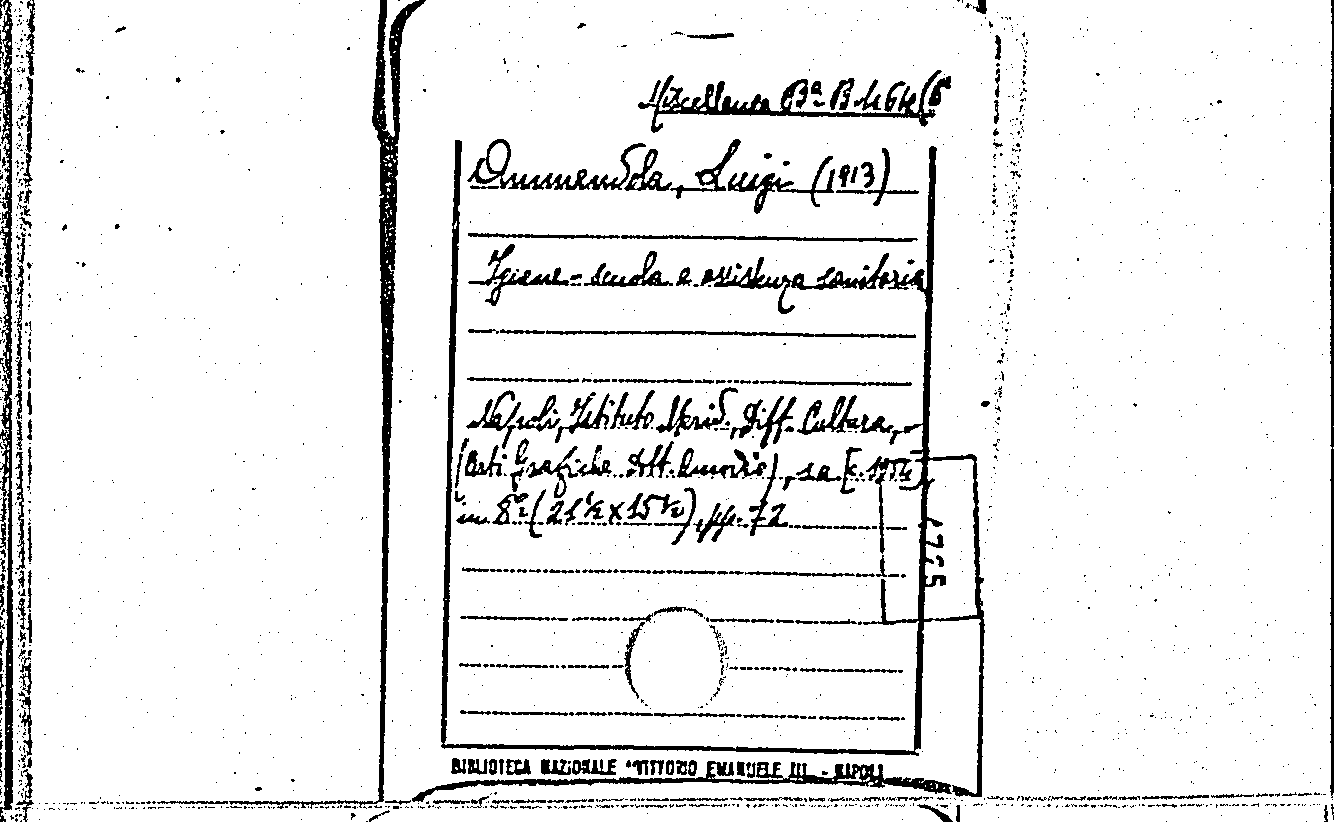 Miscellanea Bª B 464(6ª
Ammendola, Luigi (1913)
Igiene - scuola e assistenza sanitaria
Napoli, Istituto Merid. Diff. Cultura, -
(Arti Grafiche Dott. Amodio), s.a. [c. 1954],
in 8º (21½ x 15½), pp. 72
BIBLIOTECA NAZIONALE "VITTORIO EMANUELE III - NAPOLI